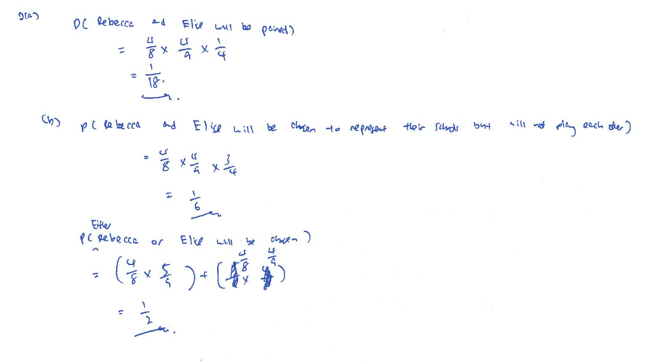 9(a) P( Rebecca and Elise will be paired)
= 4/8 × 4/9 × 1/4
= 1/18.
(b) P( Rebecca and Elise will be chosen to represent their schools but will not play each other)
= 4/8 × 4/9 × 3/4
= 1/6
Either
P( Rebecca or Elise will be chosen)
= (4/8 × 5/9) + (4/8 × 4/9)
= 1/2.